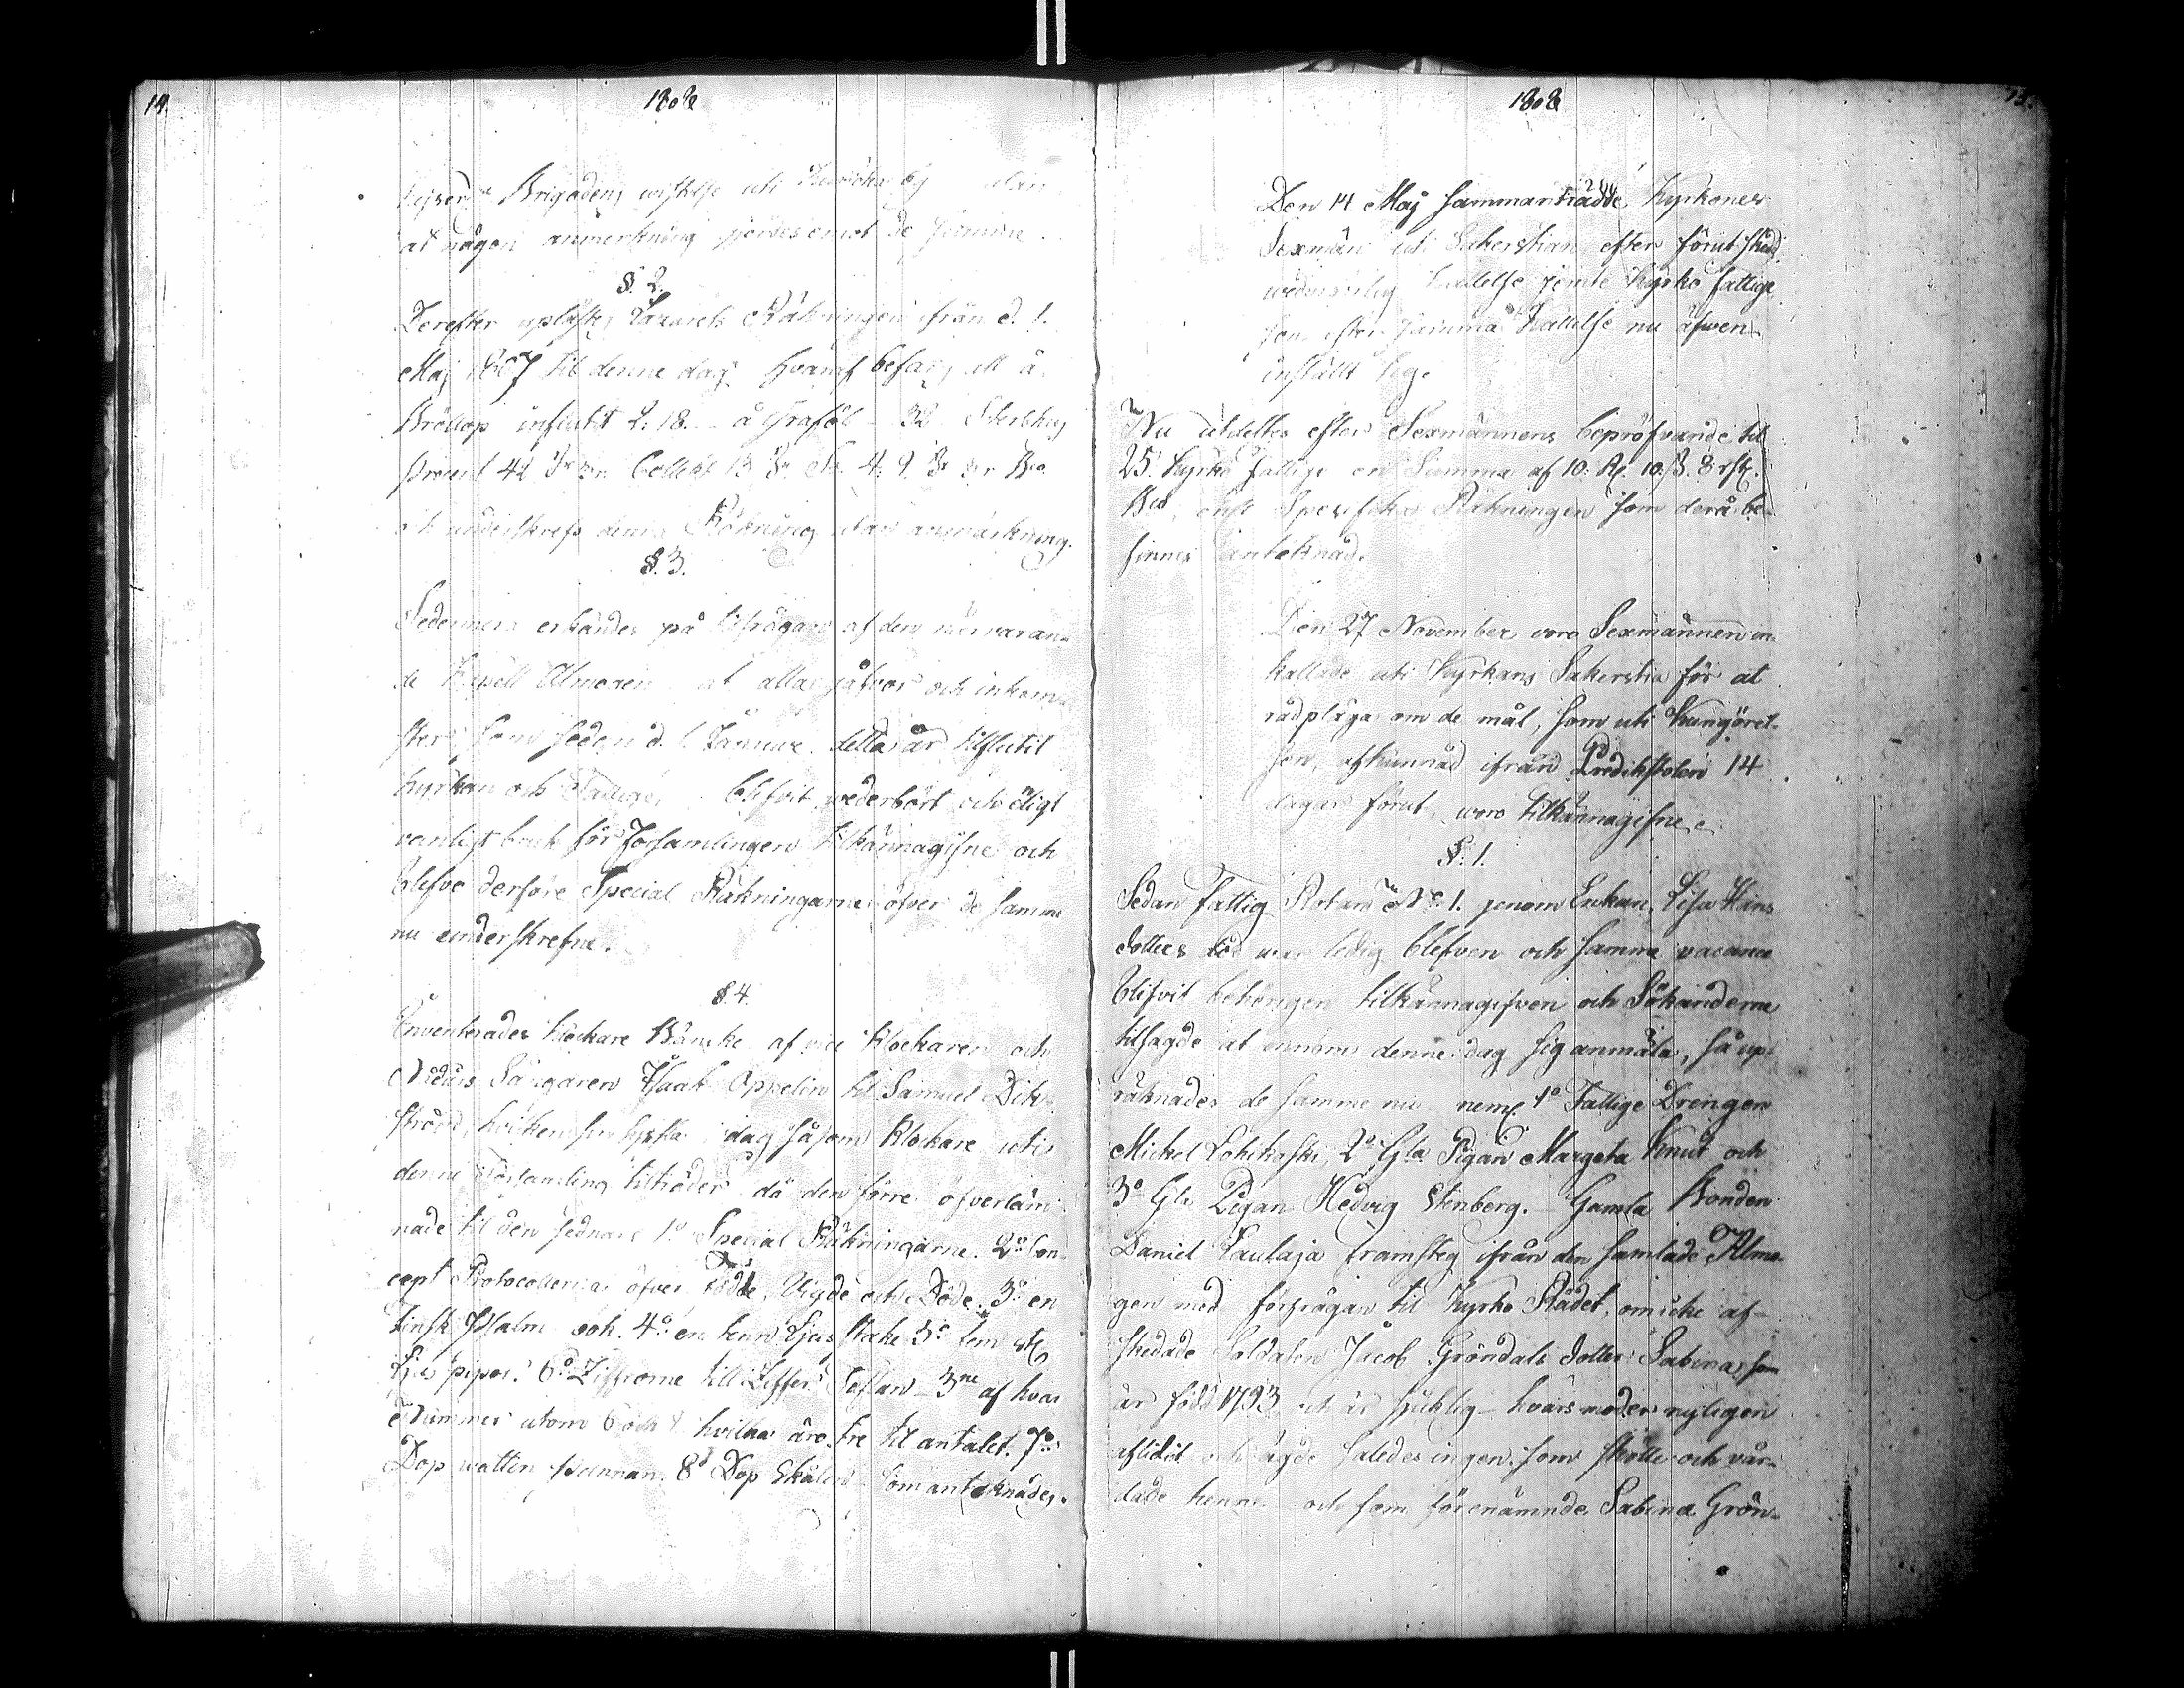 14.
1808
Brigadens wistelse uti by utan
at någon anmerkning gjordes emot de samme.
§. 2.
Derefter uplästes Lazarets Räkningen ifrån d. 1.
Maj 1807 til denne dag hvaraf befans att å
Bröllop influtit 2. 18. å Graföl 32 Sterbhus
procent 42 Collect 13
underskrefs denna Räkning utan anmärkning.
§. 3.
Sedermera erkändes på tilfrågan af den närvaran-
de Capell Almogen at alla gåfvor och inkom-
ster som sedan d. 1 Januar. detta år tilflutit
kyrkan och Fattige, blifvit vederbörl. och öligt
vanligt bruk för Församlingen tilkännagifne och
blefvo derföre Special Räkningarne öfver de samma
nu underskrefne.
§. 4.
Inventerades klockare af vice klockaren och
Isaak Appelin til Samuel Dik-
ström, hvilken dag såsom Klockare uti
denne Församling tilträder då den förre öfverläm-
nade til den sednare 1o Special Räkningarne. 2o Con-
cept Protocollerna öfver Födde, Vigde och Döde. 3o en
Finsk Psalm bok. 4o en tenn Ljus Stake 5o fem st
Ljus pipor. 6o Ziffrorne till Ziffer Taflan 3ne af hvar
Nummer utom 6 och hvilka äro fre til antalet. 7o
Dop vatten pannan. 8o Dop Skålen som antecknades.
1808
15.
Den 14 Maj sammanträdde Kyrkones
Sexmän uti Sakerstian efter förut skedd
vederbörlig Kallelse jemte Kyrko fattige
som efter samma Kallelse nu äfwen
instält sig.
Nu utdeltes efter Sexmännens bepröfvande til
25 Kyrko fattige en Summa af 10. R. 10. ß. 8 rst.
Bco enl. Specifika Räkningen som derå be-
finnes antecknad.
Den 27 November voro Sexmännen in-
kallade uti Kyrkans Sakerstia för at
rådpläga om de mål, som uti Kungörel-
sen, afkunnad ifrån Predikstolen 14
dagar förut, voro tilkännagifne.
§. 1.
Sedan fattig Rotan No 1. genom Enkan Lisa Hans
dotters död war ledig blefven och samma vacance
blifvit behörigen tilkännagifven och Sökanderne
tilsagde at innom denne dag sig anmäla, så up-
räknades de samme nu neml. 1o Fattige Drengen
Michel Lohikoski, 2o Gla Pigan Margeta Knut och
3o Gla Pigan Hedvig Stenberg. Gamla Bonden
Daniel Laulaja framsteg ifrån den samlade Alme-
gen med förfrågan til Kyrko Rådet, om icke af-
skedade Soldaten Jacob Gröndals dotter Sabina, som
är född 1793 och är sjuklig hvars moder nyligen
aflidit och ägde således ingen som skötte och vår-
dade henne och som förenämnde Sabina Grön-